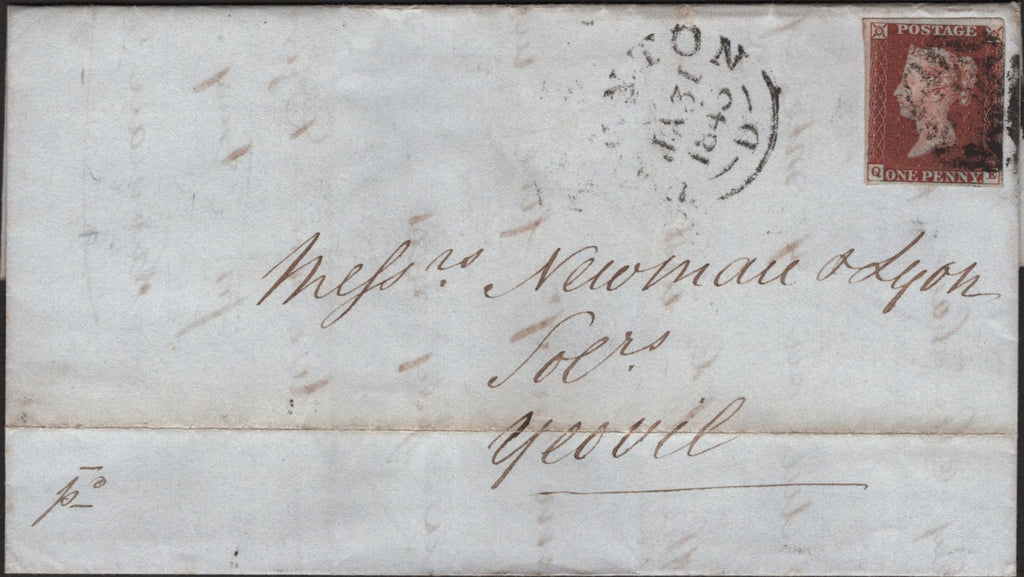 NTON
JA 31
1845
D
POSTAGE
Q E
ONE PENNY
Messrs. Newman & Lyon
Solrs.
Yeovil
pd